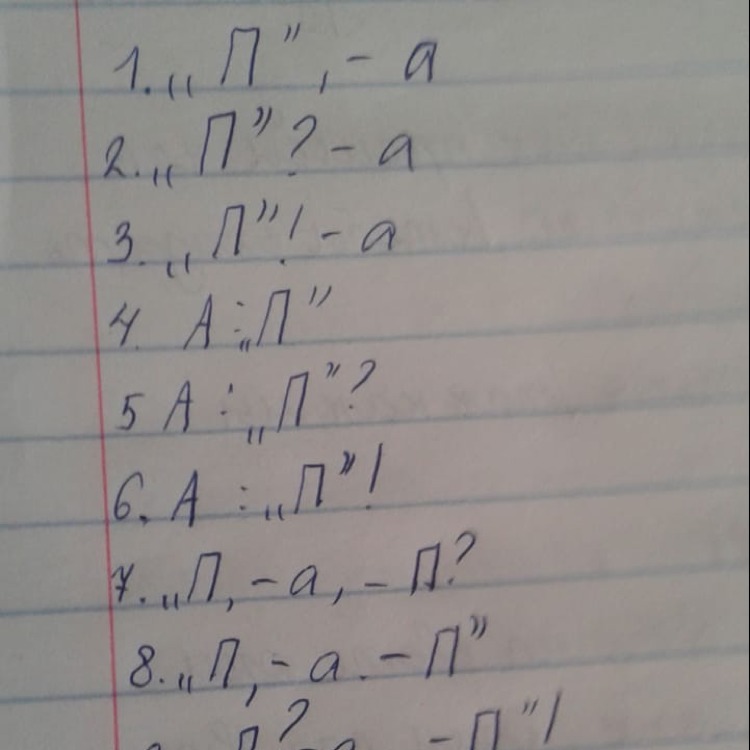 1. „П”, – а
2. „П”? – а
3. „П”! – а
4. А : „П”
5 А : „П”?
6. А : „П”!
7. „П, – а, – П?
8. „П, – а. – П”
П? а – П”!